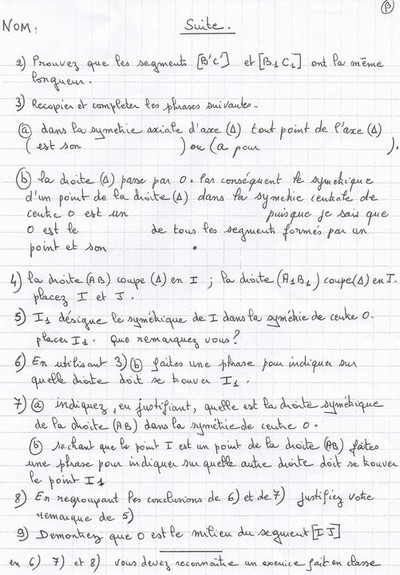 β
NOM: Suite.
2) Prouvez que les segments [B'C'] et [B₁C₁] ont la même
longueur.
3) Recopier et completer les phrases suivantes.
ⓐ dans la symetrie axiale d'axe (Δ) tout point de l'axe (Δ)
( est son ) ou (a pour ).
ⓑ la droite (Δ) passe par O. Par conséquent le symétrique
d'un point de la droite (Δ) dans la symetrie centrale de
centre O est un puisque je sais que
O est le de tous les segments formés par un
point et son .
4) la droite (AB) coupe (Δ) en I ; la droite (A₁B₁) coupe (Δ) en J.
placez I et J.
5) I₁ désigne le symétrique de I dans la symétrie de centre O.
placer I₁. Que remarquez vous ?
6) En utilisant 3) ⓑ faites une phrase pour indiquer sur
quelle droite doit se trouver I₁.
7) ⓐ indiquez, en justifiant, quelle est la droite symétrique
de la droite (AB) dans la symétrie de centre O.
ⓑ sachant que le point I est un point de la droite (AB) faites
une phrase pour indiquer sur quelle autre droite doit se trouver
le point I₁
8) En regroupant les conclusions de 6) et de 7) justifiez votre
remarque de 5)
9) Demontrez que O est le milieu du segment [IJ]
en 6) 7) et 8) vous devez reconnaître un exercice fait en classe